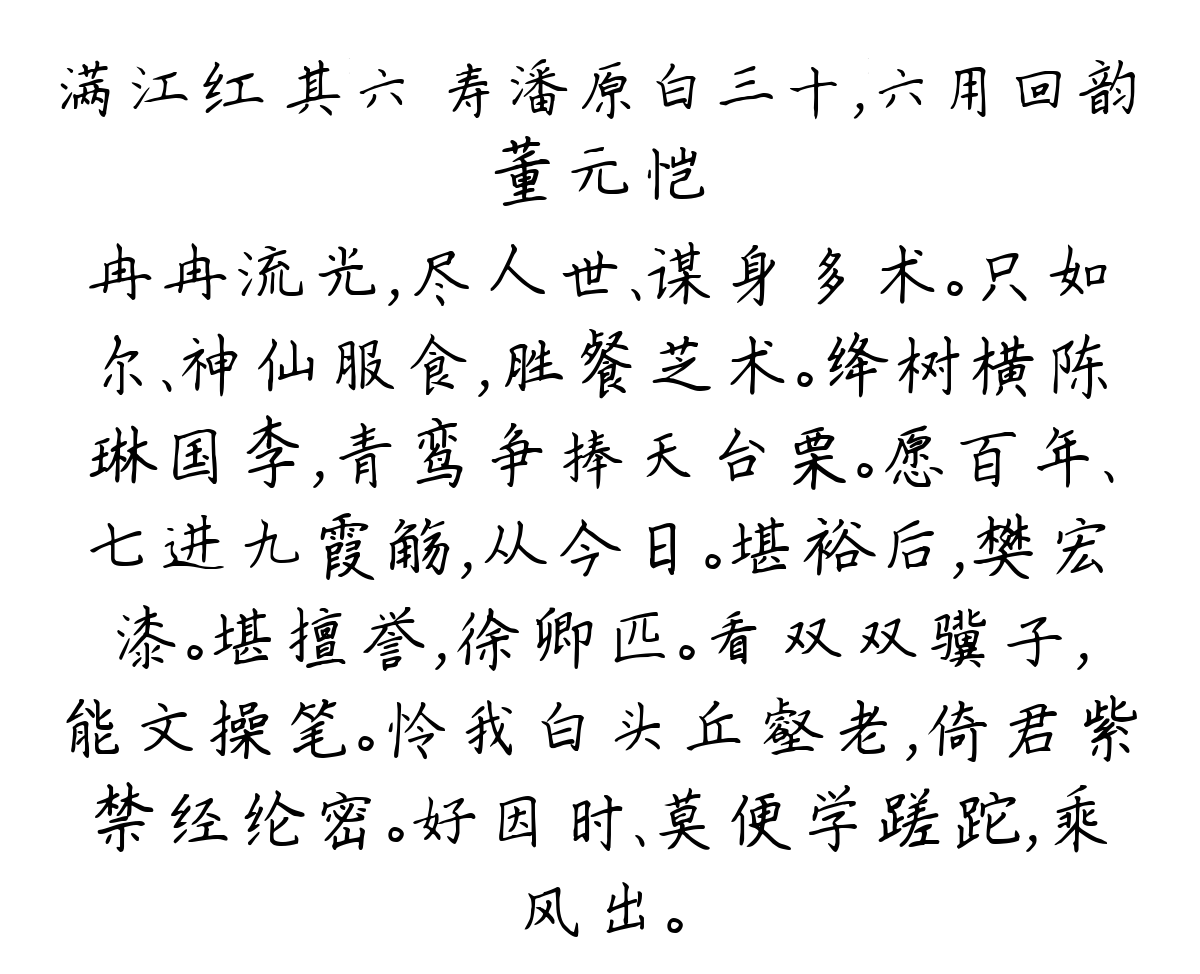 满江红 其六 寿潘原白三十,六用回韵
董元恺
冉冉流光,尽人世、谋身多术。只如
尔、神仙服食,胜餐芝术。绛树横陈
琳国李,青鸾争捧天台栗。愿百年、
七进九霞觞,从今日。堪裕后,樊宏
漆。堪擅誉,徐卿匹。看双双骥子,
能文操笔。怜我白头丘壑老,倚君紫
禁经纶密。好因时、莫便学蹉跎,乘
风出。